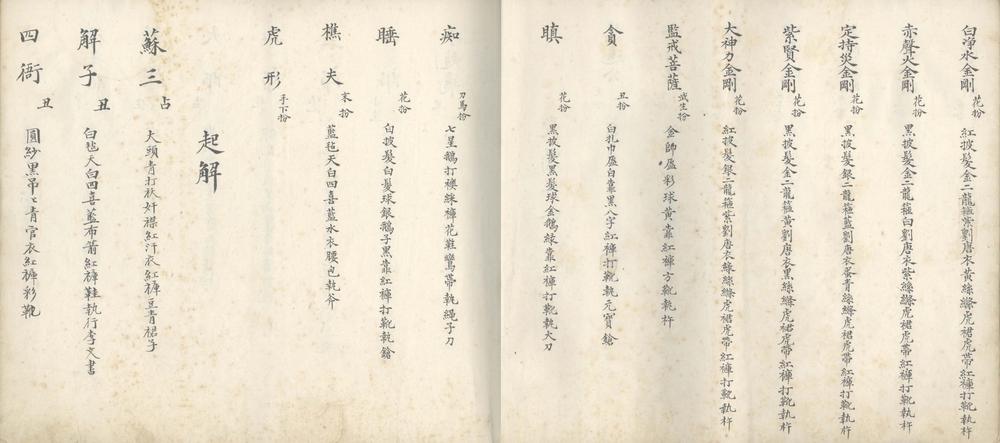 白净水金剛 花扮 紅披髮金二龍箍紫劉唐衣黃絲縧虎裙虎帶紅褲打靴執杵
赤聲火金剛 花扮 黑披髮金二龍箍白劉唐衣紫絲縧虎裙虎帶紅褲打靴執杵
定持災金剛 花扮 黑披髮銀二龍箍藍劉唐衣蛋青絲縧虎裙虎帶紅褲打靴執杵
紫賢金剛 花扮 黑披髮金二龍箍黃劉唐衣黑絲縧虎裙虎帶紅褲打靴執杵
大神力金剛 花扮 紅披髮銀二龍箍紫劉唐衣綠絲縧虎裙虎帶紅褲打靴執杵
監戒菩薩 武生扮 金帥盔彩球黃靠紅褲方靴執杵
貪 丑扮 白扎巾盔白靠黑八字紅褲打靴執元寶鎗
瞋 花扮 黑披髮黑髮球金鵝綠靠紅褲打靴執大刀
痴 刀馬扮 七星鵝打襖綵褲花鞋鸞帶執繩子刀
睡 花扮 白披髮白髮球銀鵝子黑靠紅褲打靴執鎗
樵夫 末扮 藍毡天白四喜藍水衣腰包執斧
虎形 手下扮
起解
蘇三 占 大頭青打衩奸襟紅汗衣紅褲豆青裙子
解子 丑 白毡天白四喜藍布箭紅褲鞋執行李文書
四衙 丑 圓紗黑吊七青官衣紅褲彩靴